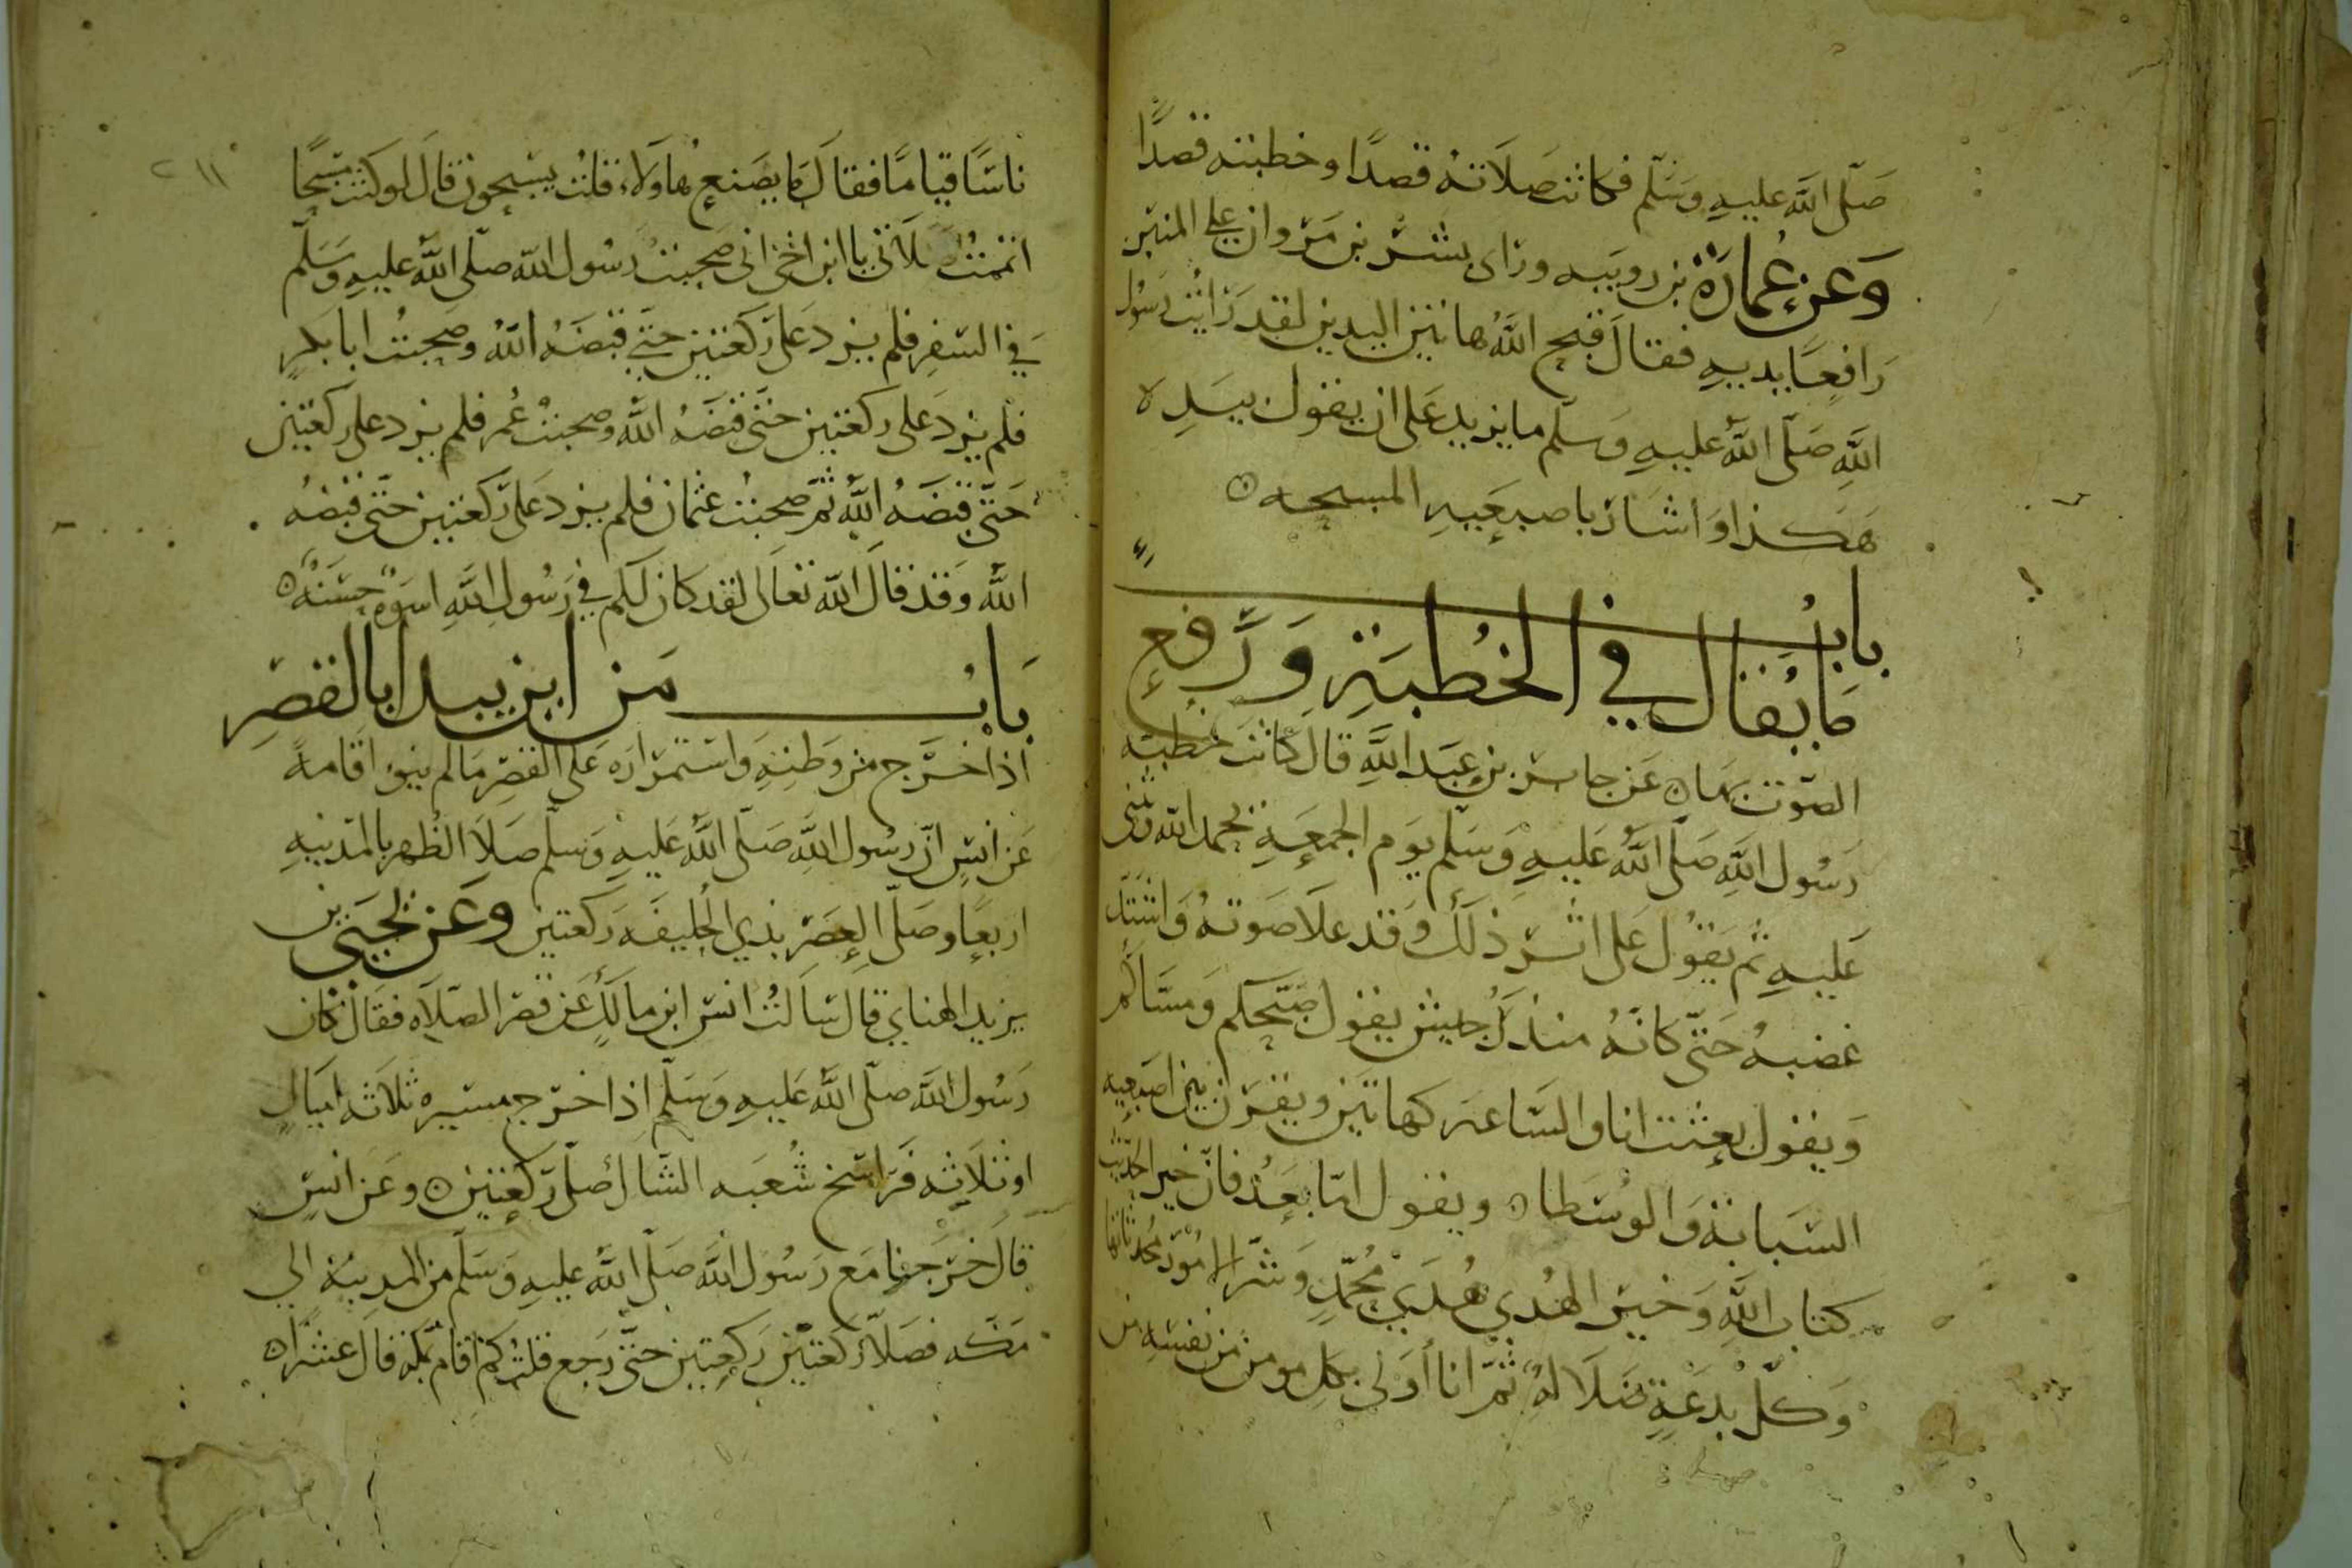 صَلّى اللَّه عليهِ وَسَلّم فكانت صَلَاتهُ قصدًا وخطبته قصدًا
وَعن عُمارَة بن رويبه وراى بشر بن مَروان على المنبَر
رَافعًا يديهِ فقالَ قبح اللَّهُ هاتين اليدين لقد رَايت رسُول
اللَّهِ صَلّى اللَّه عليهِ وَسلّم ما يزيد عَلى ان يقول بيَدِه
هَكذا وَاشار باصبعَيهِ المسبحه
بابُ
مَا يُقال في الخُطبَةِ وَرَفع
الصّوت بهَا عَن جابر بن عبَد اللَّهِ قالَ كانَت خُطبَة
رَسُول اللَّهِ صَلّى اللَّهُ عَليهِ وَسَلّم يوَم الجمعَةِ نحمد الله ونثنى
عَليهِ ثم يَقوُل عَلى اثر ذلكَ وَقد علَا صَوتهُ وَاشتَدّ
غضبهُ حَتّى كانّهُ منذرُ جيش يقول صَبّحكم وَمسّاكم
وَيقول بعِثت انا والسَّاعة كهاتَين ويقرن بين اصبَعيه
السّبابة وَالوسُطا ويقول امّا بعَدُ فانّ خير الحديث
كتاب اللَّهِ وَخيرَ الهُدي هُدَي مُحمّدٍ وَشرّ الامُور مُحدثاتها
وَكلّ بِدعَةٍ ضَلَالهُ ثمّ انا أوَلى بكل مومن من نفسَهِ من
٢١١
ناسًا قيامًا فقالَ مَا يصَنع هاوَلاء قلتُ يسَبحون قالَ لوكنتُ مسَبحًا
اتممتُ صَلَاتى يا ابن اخى انى صَحِبتُ رَسُول اللّه صلّى اللَّهُ عليهِ وَسَلّم
في السّفرِ فلم يزد عَلى رَكعتين حتّي قبضَهُ اللَّهُ وصَحبتُ ابا بَكرٍ
فلم يزد عَلى ركعتين حتّى قبضَهُ اللَّه وصَحبتُ عُمر فلم يزد على ركعَتين
حَتّى قبضَهُ اللَّه ثمّ صَحبت عثمان فلم يزد عَلى رَكعتين حَتّى قبضهُ
اللَّهُ وَقد قالَ اللّه تعَالى لقد كان لَكم في رَسُول اللَّهِ اسوَةٌ حسَنَةٌ
بَابُ مَن اين يبدا بالقصَرِ
اذا خرَج من وَطنِهِ وَاستمرَارهَ عَلى القصَرِ مَا لم ينوِ اقامةً
عَن انسٍ انّ رسُول اللَّهِ صَلّى اللَّهُ عَليهِ وَسلّم صَلَا الظُهر بالمدَينهِ
اربعًا وصَلّى العصَر بذي الحُليفَه رَكعتين وعَن يحيَى بن
يزيد الهناي قال سَالتُ انس ابن مالكٍ عَن قصر الصّلَاه فقالَ كان
رَسُول اللَّه صَلّى اللَّهُ عَليهِ وَسَلّم اذا خرَج مسَيره ثلَاثه امَيالٍ
او ثلَاثِه فَراسَخ شُعبَه الشّاك صَلّى رَكعَتين وعَن انسٍ
قالَ خرَجنا مَع رَسُول اللَّه صَلّى اللَّه عليهِ وَسَلّم من المدِينة الي
مَكّه فصَلّا رَكعتَين رَكعَتين حتّى رَجع قلتُ كمَ اقام بمكّه قالَ عشرًا